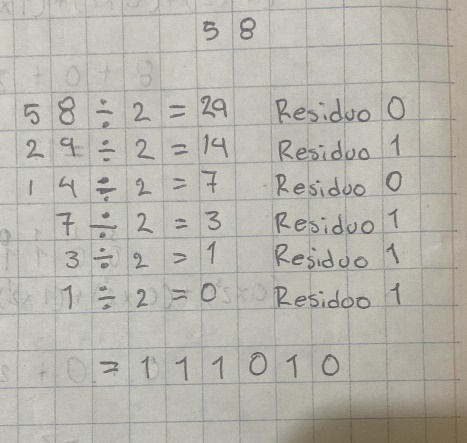 58
58 ÷ 2 = 29 Residuo 0
29 ÷ 2 = 14 Residuo 1
14 ÷ 2 = 7 Residuo 0
7 ÷ 2 = 3 Residuo 1
3 ÷ 2 = 1 Residuo 1
1 ÷ 2 = 0 Residuo 1
= 111010